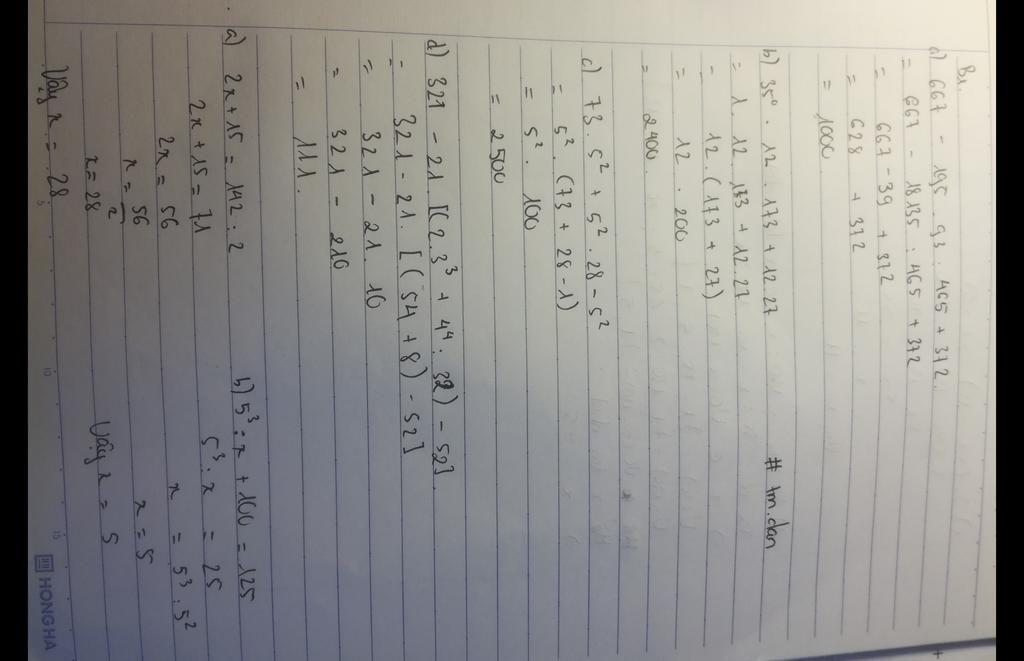 B1.
a) 667 - 195 . 93 : 465 + 372.
= 667 - 18135 : 465 + 372
= 667 - 39 + 372
= 628 + 372
= 1000.
b) 35⁰ . 12 . 173 + 12 . 27
= 1 . 12 . 173 + 12 . 27
- 12 . (173 + 27)
= 12 . 200
= 2400.
# tm.dan
c) 73 . 5² + 5² . 28 - 5²
= 5² . (73 + 28 - 1)
= 5² . 100
= 2500
d) 321 - 21 . [(2 . 3³ + 4⁴ : 32) - 52].
- 321 - 21 . [(54 + 8) - 52]
= 321 - 21 . 10
= 321 - 210
= 111.
a) 2x + 15 = 142 : 2
2x + 15 = 71
2x = 56
x = 56
2
x = 28
Vậy x = 28
b) 5³ : x + 100 = 125
5³ : x = 25
x = 5³ : 5²
x = 5
Vậy x = 5
5
10
15
HONG HA